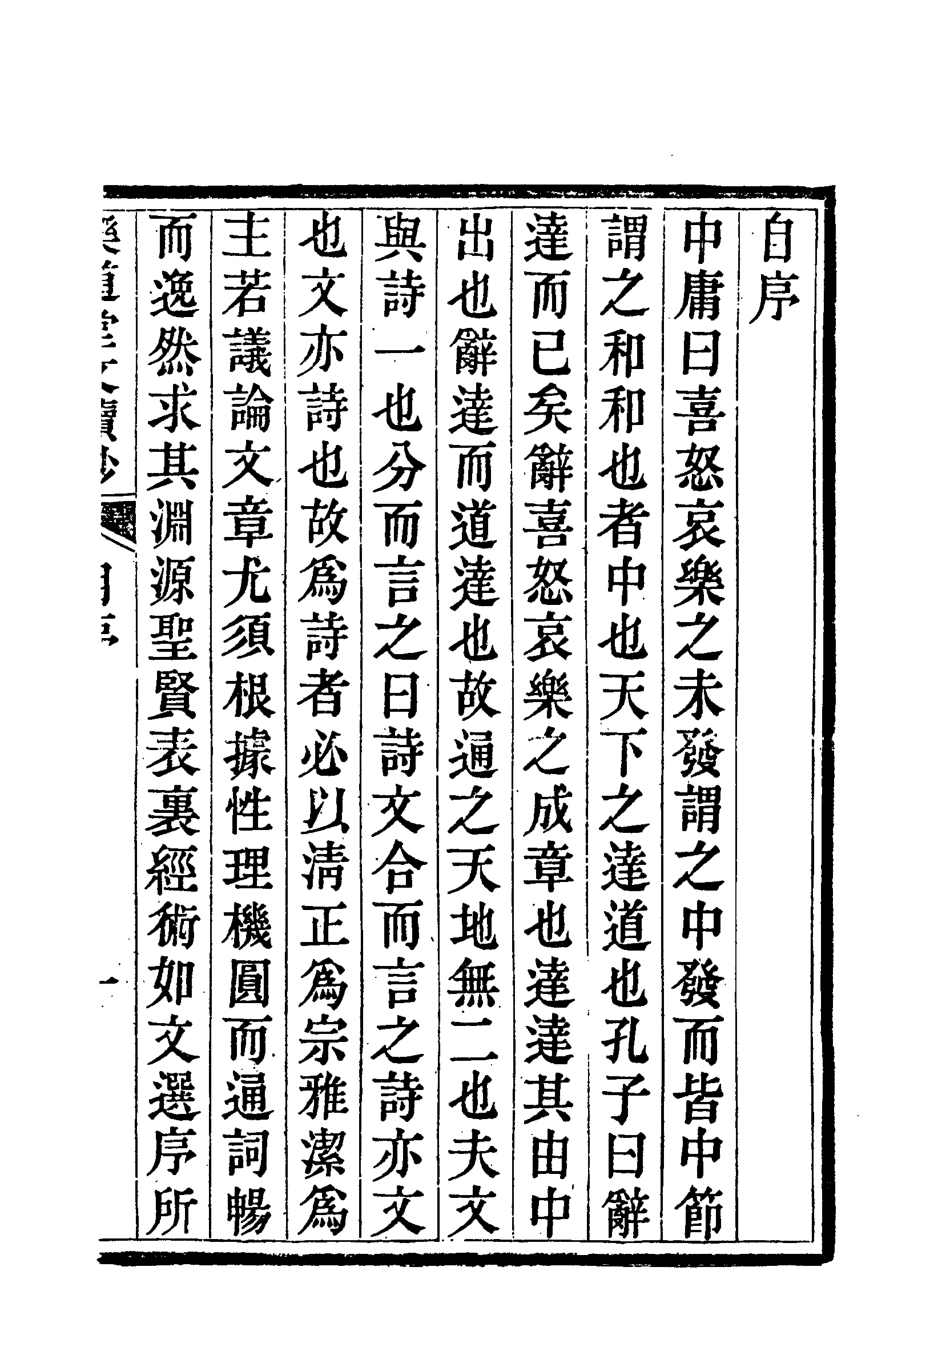 自序
中庸曰喜怒哀樂之未發謂之中發而皆中節
謂之和和也者中也天下之達道也孔子曰辭
達而已矣辭喜怒哀樂之成章也達達其由中
出也辭達而道達也故通之天地無二也夫文
與詩一也分而言之曰詩文合而言之詩亦文
也文亦詩也故爲詩者必以清正爲宗雅潔爲
主若議論文章尤須根據性理機圓而通詞暢
而逸然求其淵源聖賢表裏經術如文選序所
樂道堂文續鈔 自序 一